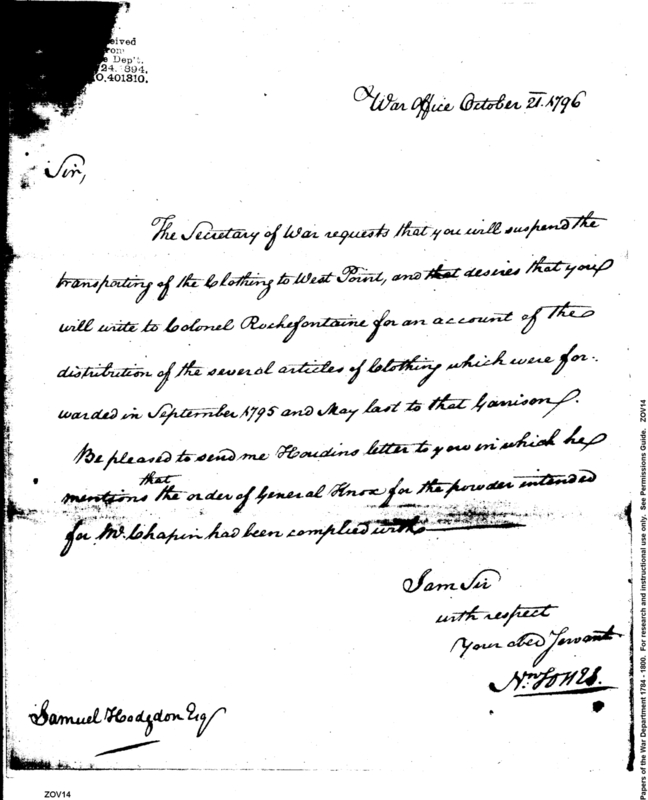 eived
rom
e Dep't.
24. 894.
O.401310.
War Office October 21. 1796
Sir,
The Secretary of War requests that you will suspend the
transporting of the Clothing to West Point, and that desires that you
will write to Colonel Rochefontaine for an account of the
distribution of the several articles of Clothing which were for-
warded in September 1795 and May last to that Garrison.
Be pleased to send me Houdins letter to you in which he
that
mentions the order of General Knox for the powder intended
for Mr. Chapin had been complied with
I am Sir
with respect
Your obed Servant
Nn Jones.
Samuel Hodgdon Esq
ZOV14
Papers of the War Department 1784 - 1800. For research and instructional use only. See Permissions Guide. ZOV14